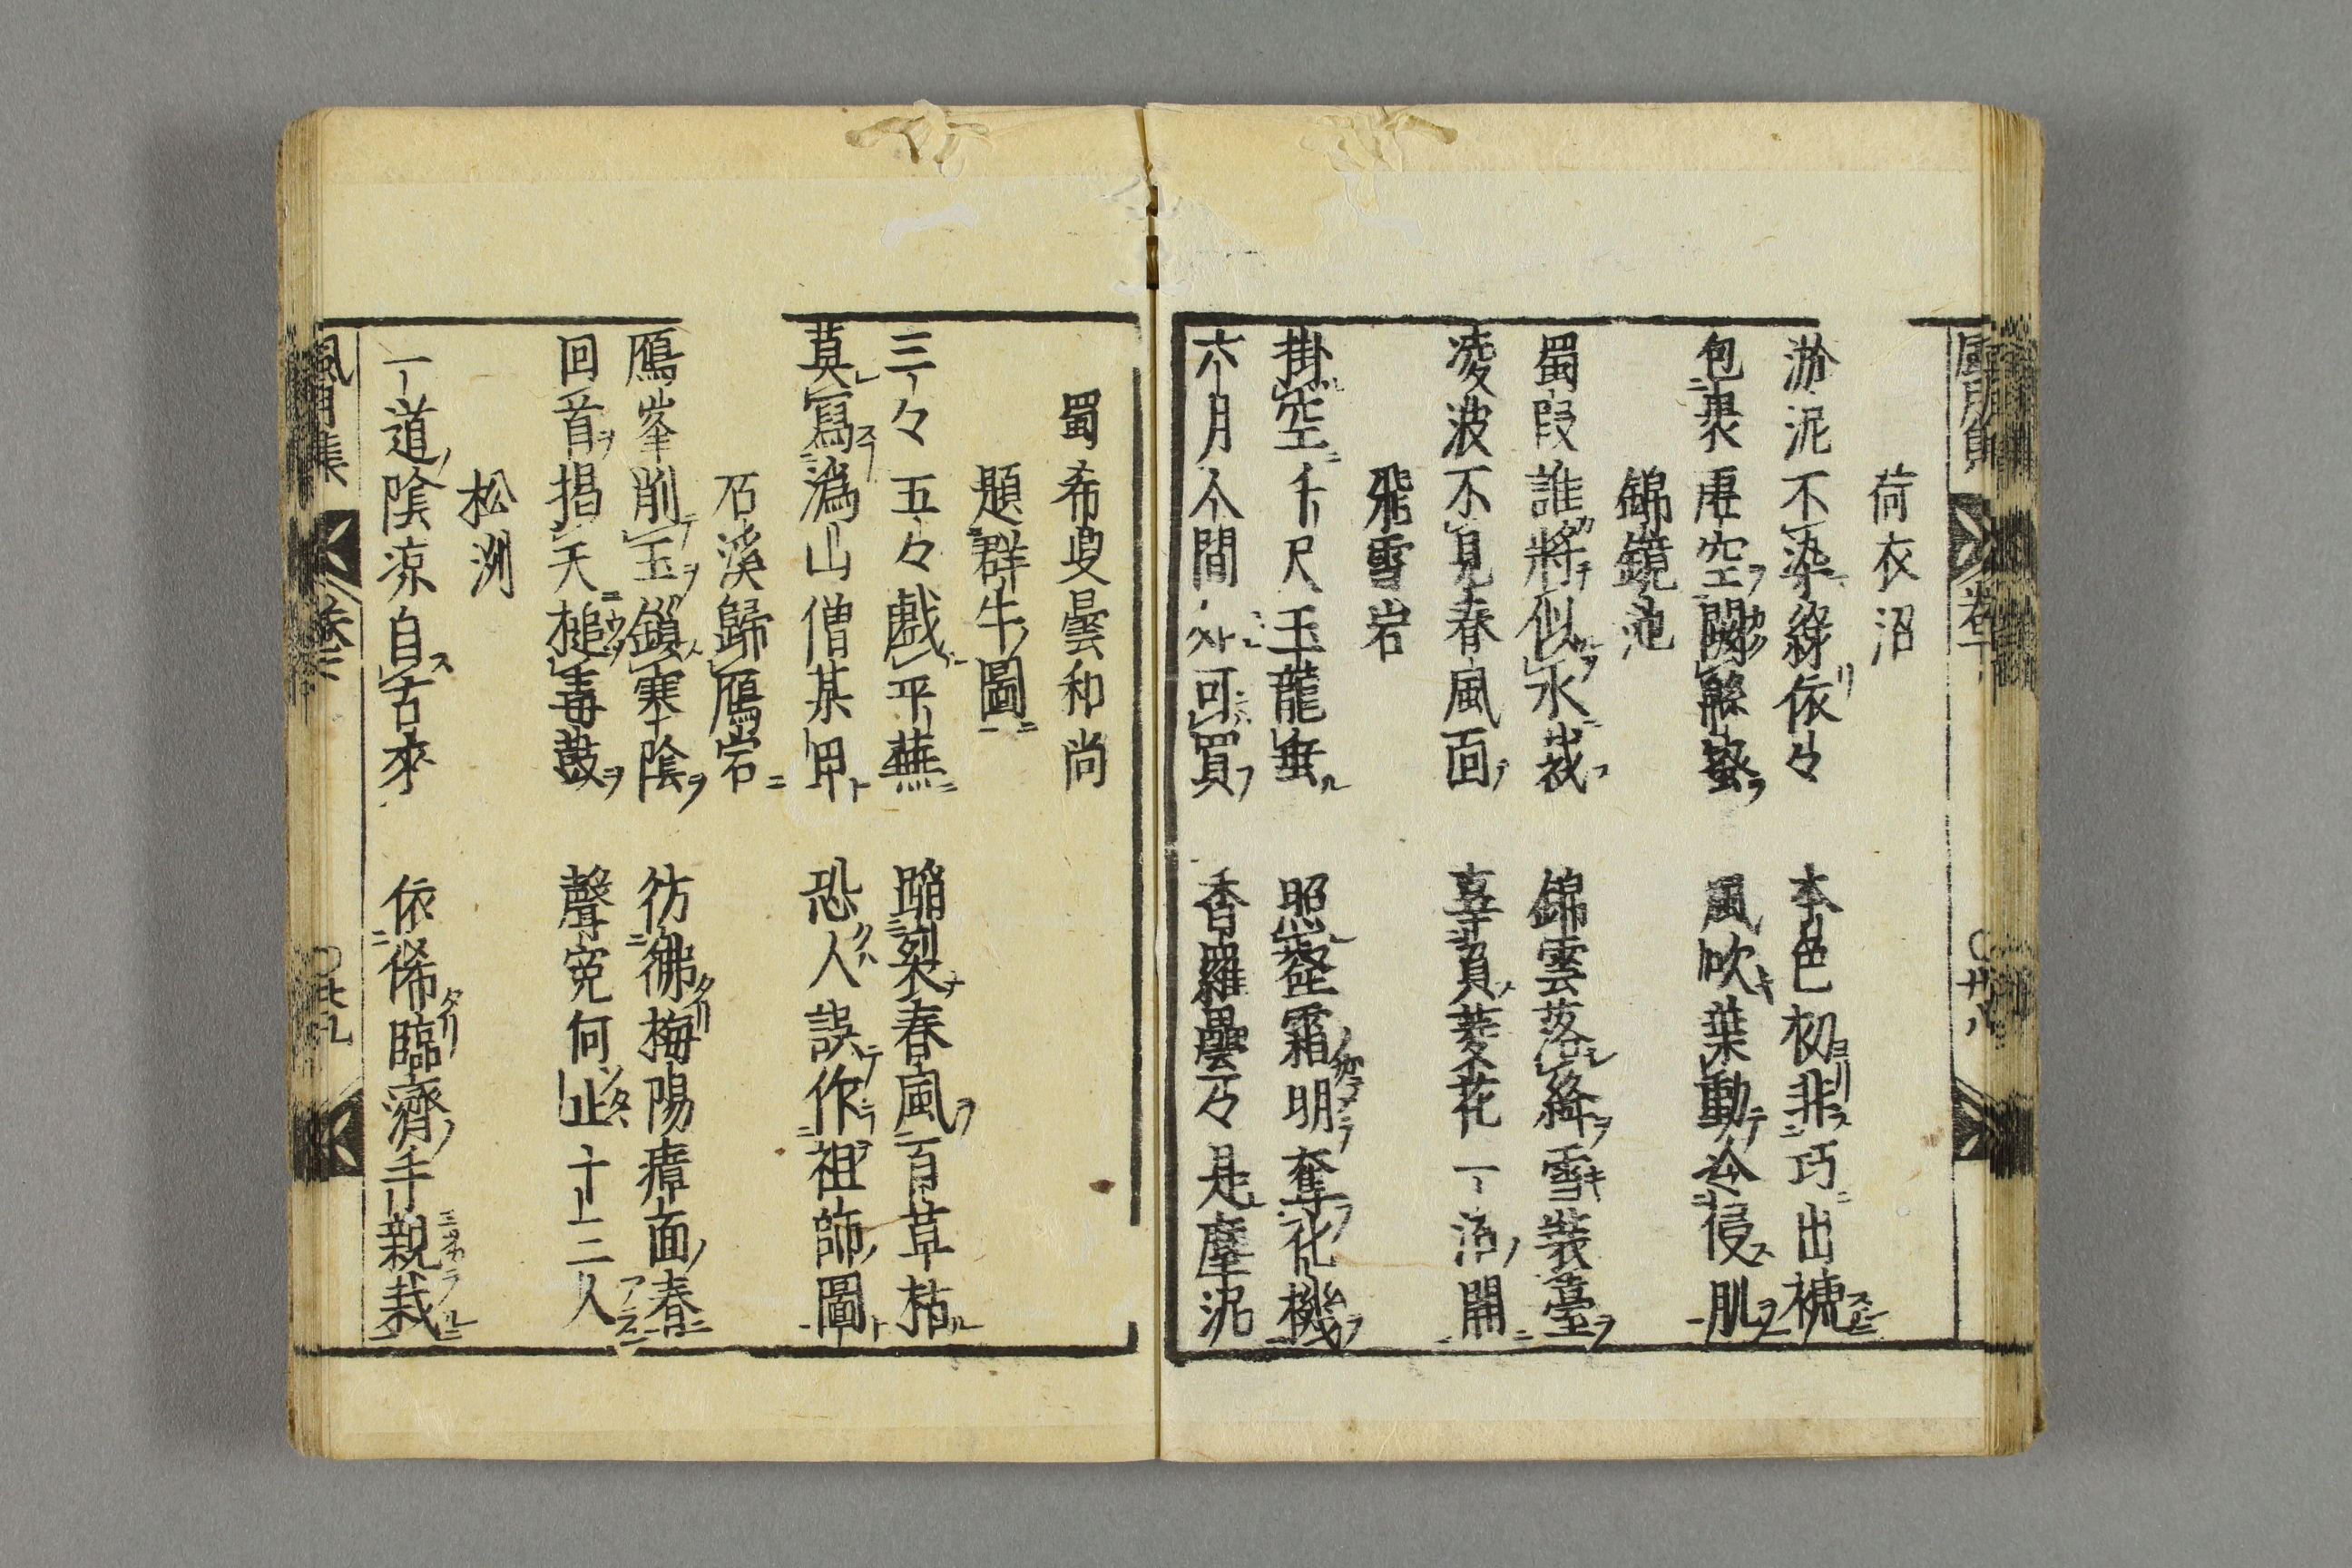 荷衣沼
淤泥不染綠依々　本色初非巧出㡒
包裹虛空闕罅䗋　風吹葉動冷侵肌
錦鏡池
蜀段誰將似水裁　錦雲落絳雪裝臺
凌波不見春風面　辜負菱花一沼開
飛雪岩
掛空千尺玉龍垂　照壑霜明奪化機
六月人間外可買　香羅疊々是摩泥
蜀希叟曇和尚
題群牛圖
三々五々戲平蕪　蹈裂春風百草枯
莫寫潙山僧某甲　恐人誤作祖師圖
石溪歸鴈宕
鴈峯削玉鎖寒陰　彷彿梅陽瘴面春
回首揭天槌毒鼓　聲寃何止十二人
松洲
一道陰凉自古來　依俙臨濟手親栽
風月集　卷三